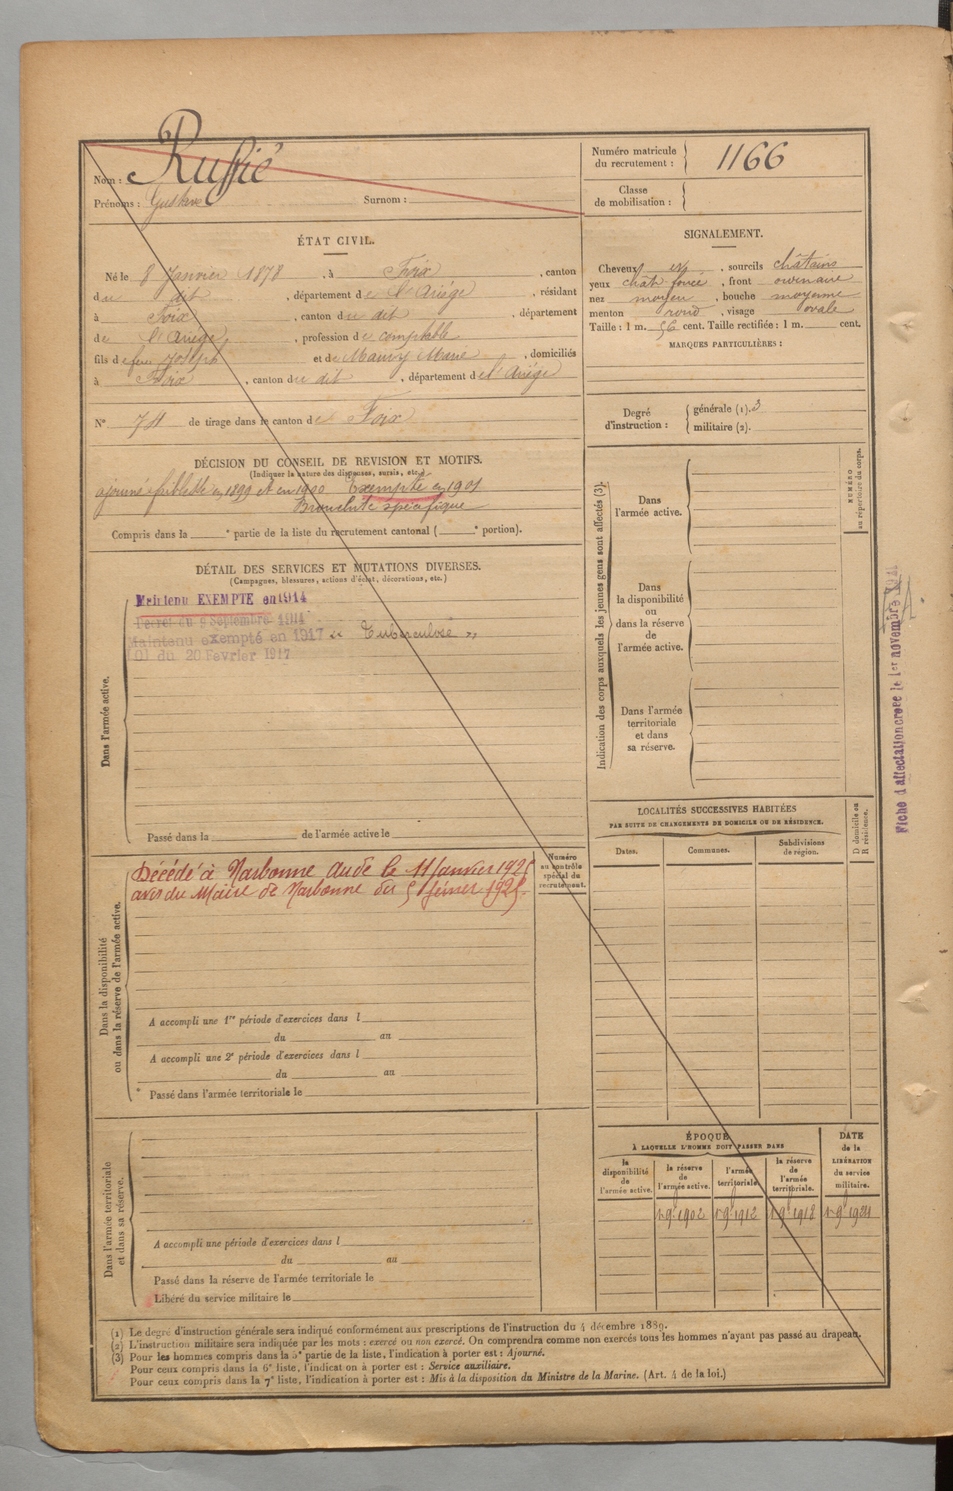 Nom : Ruffié
Prénoms : Gustave Surnom :
Numéro matricule du recrutement : 1166
Classe de mobilisation :
ÉTAT CIVIL.
Né le 8 Janvier 1878, à Foix, canton
du dit, département de l'Ariège, résidant
à Foix, canton du dit, département
de l'Ariège, profession de comptable
fils de feu Joseph et de Maury Marie, domiciliés
à Foix, canton du dit, département de l'Ariège
N° 74 de tirage dans le canton de Foix
SIGNALEMENT.
Cheveux et, sourcils châtains
yeux chat. foncé, front ordinaire
nez moyen, bouche moyenne
menton rond, visage ovale
Taille : 1 m. 56 cent. Taille rectifiée : 1 m. cent.
MARQUES PARTICULIÈRES :
Degré d'instruction : générale (1). 3
militaire (2).
DÉCISION DU CONSEIL DE REVISION ET MOTIFS.
(Indiquer la nature des dispenses, sursis, etc.)
ajourné faiblesse en 1899 et en 1900 Exempté en 1901
Bronchite spécifique
Compris dans la e partie de la liste du recrutement cantonal ( e portion).
DÉTAIL DES SERVICES ET MUTATIONS DIVERSES.
(Campagnes, blessures, actions d'éclat, décorations, etc.)
Dans l'armée active.
Maintenu EXEMPTÉ en 1914
Décret du 9 Septembre 1914
Maintenu exempté en 1917 « Tuberculose »
Loi du 20 Février 1917
Passé dans la de l'armée active le
Indication des corps auxquels les jeunes gens sont affectés (3).
Dans l'armée active.
Dans la disponibilité ou dans la réserve de l'armée active.
Dans l'armée territoriale et dans sa réserve.
NUMÉRO au répertoire du corps.
Fiche d'affectation créée le 1er novembre
Dans la disponibilité ou dans la réserve de l'armée active.
Numéro au contrôle spécial du recrutement.
Décédé à Narbonne Aude le 11 Janvier 1925
avis du Maire de Narbonne du 5 février 1925.
A accompli une 1re période d'exercices dans l
du au
A accompli une 2e période d'exercices dans l
du au
Passé dans l'armée territoriale le
LOCALITÉS SUCCESSIVES HABITÉES
PAR SUITE DE CHANGEMENTS DE DOMICILE OU DE RÉSIDENCE.
D domicile ou R résidence.
Dates. Communes. Subdivisions de région.
Dans l'armée territoriale et dans sa réserve.
A accompli une période d'exercices dans l
du au
Passé dans la réserve de l'armée territoriale le
Libéré du service militaire le
ÉPOQUE
À LAQUELLE L'HOMME DOIT PASSER DANS
DATE de la LIBÉRATION du service militaire.
la disponibilité de l'armée active.
la réserve de l'armée active.
l'armée territoriale.
la réserve de l'armée territoriale.
1 9bre 1902 1 9bre 1912 1 9bre 1918 1 9bre 1924
(1) Le degré d'instruction générale sera indiqué conformément aux prescriptions de l'instruction du 4 décembre 1889.
(2) L'instruction militaire sera indiquée par les mots : exercé ou non exercé. On comprendra comme non exercés tous les hommes n'ayant pas passé au drapeau.
(3) Pour les hommes compris dans la 5e partie de la liste, l'indication à porter est : Ajourné.
Pour ceux compris dans la 6e liste, l'indication à porter est : Service auxiliaire.
Pour ceux compris dans la 7e liste, l'indication à porter est : Mis à la disposition du Ministre de la Marine. (Art. 4 de la loi.)